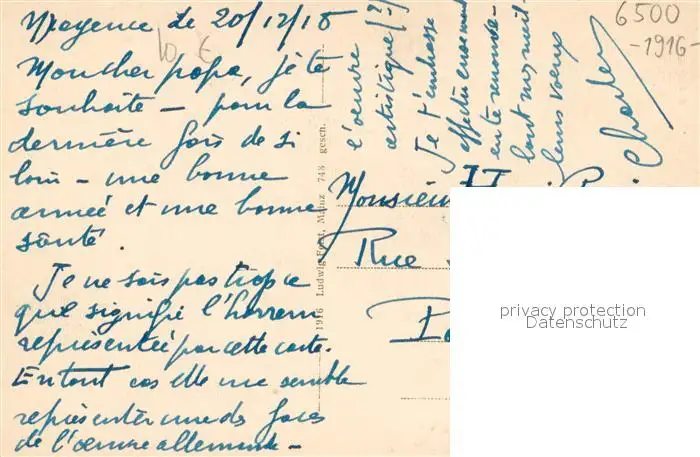 Mayence le 20/12/18
Mon cher papa, je te
souhaite – pour la
dernière fois de si
loin – une bonne
année et une bonne
santé.
Je ne sais pas trop ce
que signifie l'horreur
représentée par cette carte.
En tout cas elle me semble
représenter une des faces
de l'œuvre allemande –
l'œuvre
artistique (?)
Je t'embrasse
affectueusement
en te renouve-
lant mes meil-
leurs voeux
Charles
10 €
6500
-1916-
1916 Ludwig Feist, Mainz 748 gesch.
Monsieur H
Rue
privacy protection
Datenschutz